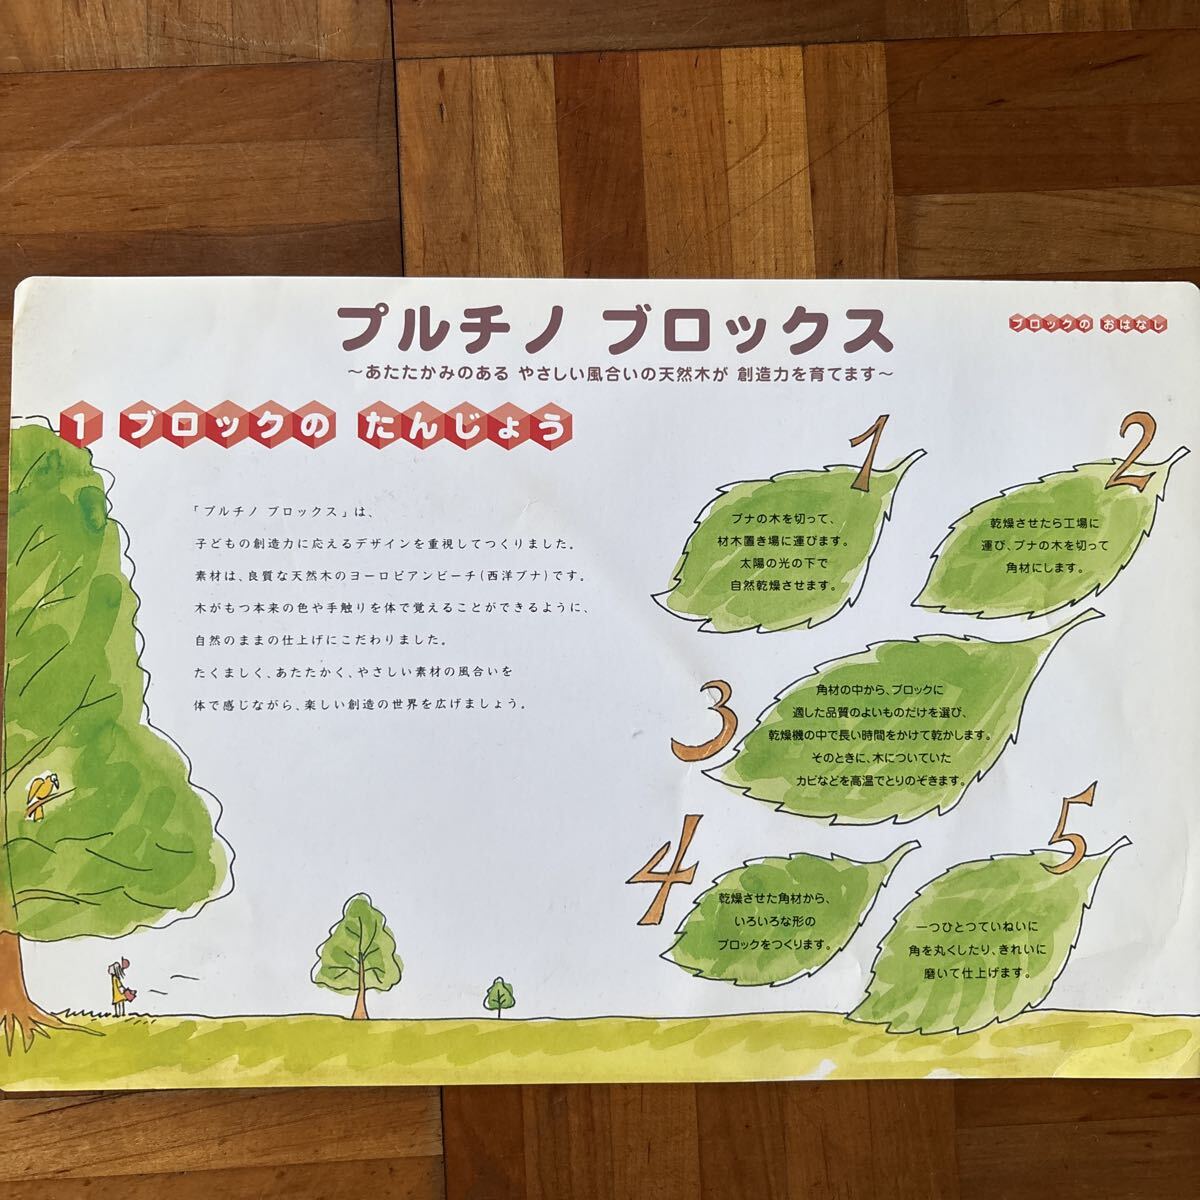 プルチノ ブロックス
ブロックの おはなし
～あたたかみのある やさしい風合いの天然木が 創造力を育てます～
1 ブロックの たんじょう
「プルチノ ブロックス」は、
子どもの創造力に応えるデザインを重視してつくりました。
素材は、良質な天然木のヨーロピアンビーチ(西洋ブナ)です。
木がもつ本来の色や手触りを体で覚えることができるように、
自然のままの仕上げにこだわりました。
たくましく、あたたかく、やさしい素材の風合いを
体で感じながら、楽しい創造の世界を広げましょう。
1
ブナの木を切って、
材木置き場に運びます。
太陽の光の下で
自然乾燥させます。
2
乾燥させたら工場に
運び、ブナの木を切って
角材にします。
3
角材の中から、ブロックに
適した品質のよいものだけを選び、
乾燥機の中で長い時間をかけて乾かします。
そのときに、木についていた
カビなどを高温でとりのぞきます。
4
乾燥させた角材から、
いろいろな形の
ブロックをつくります。
5
一つひとつていねいに
角を丸くしたり、きれいに
磨いて仕上げます。